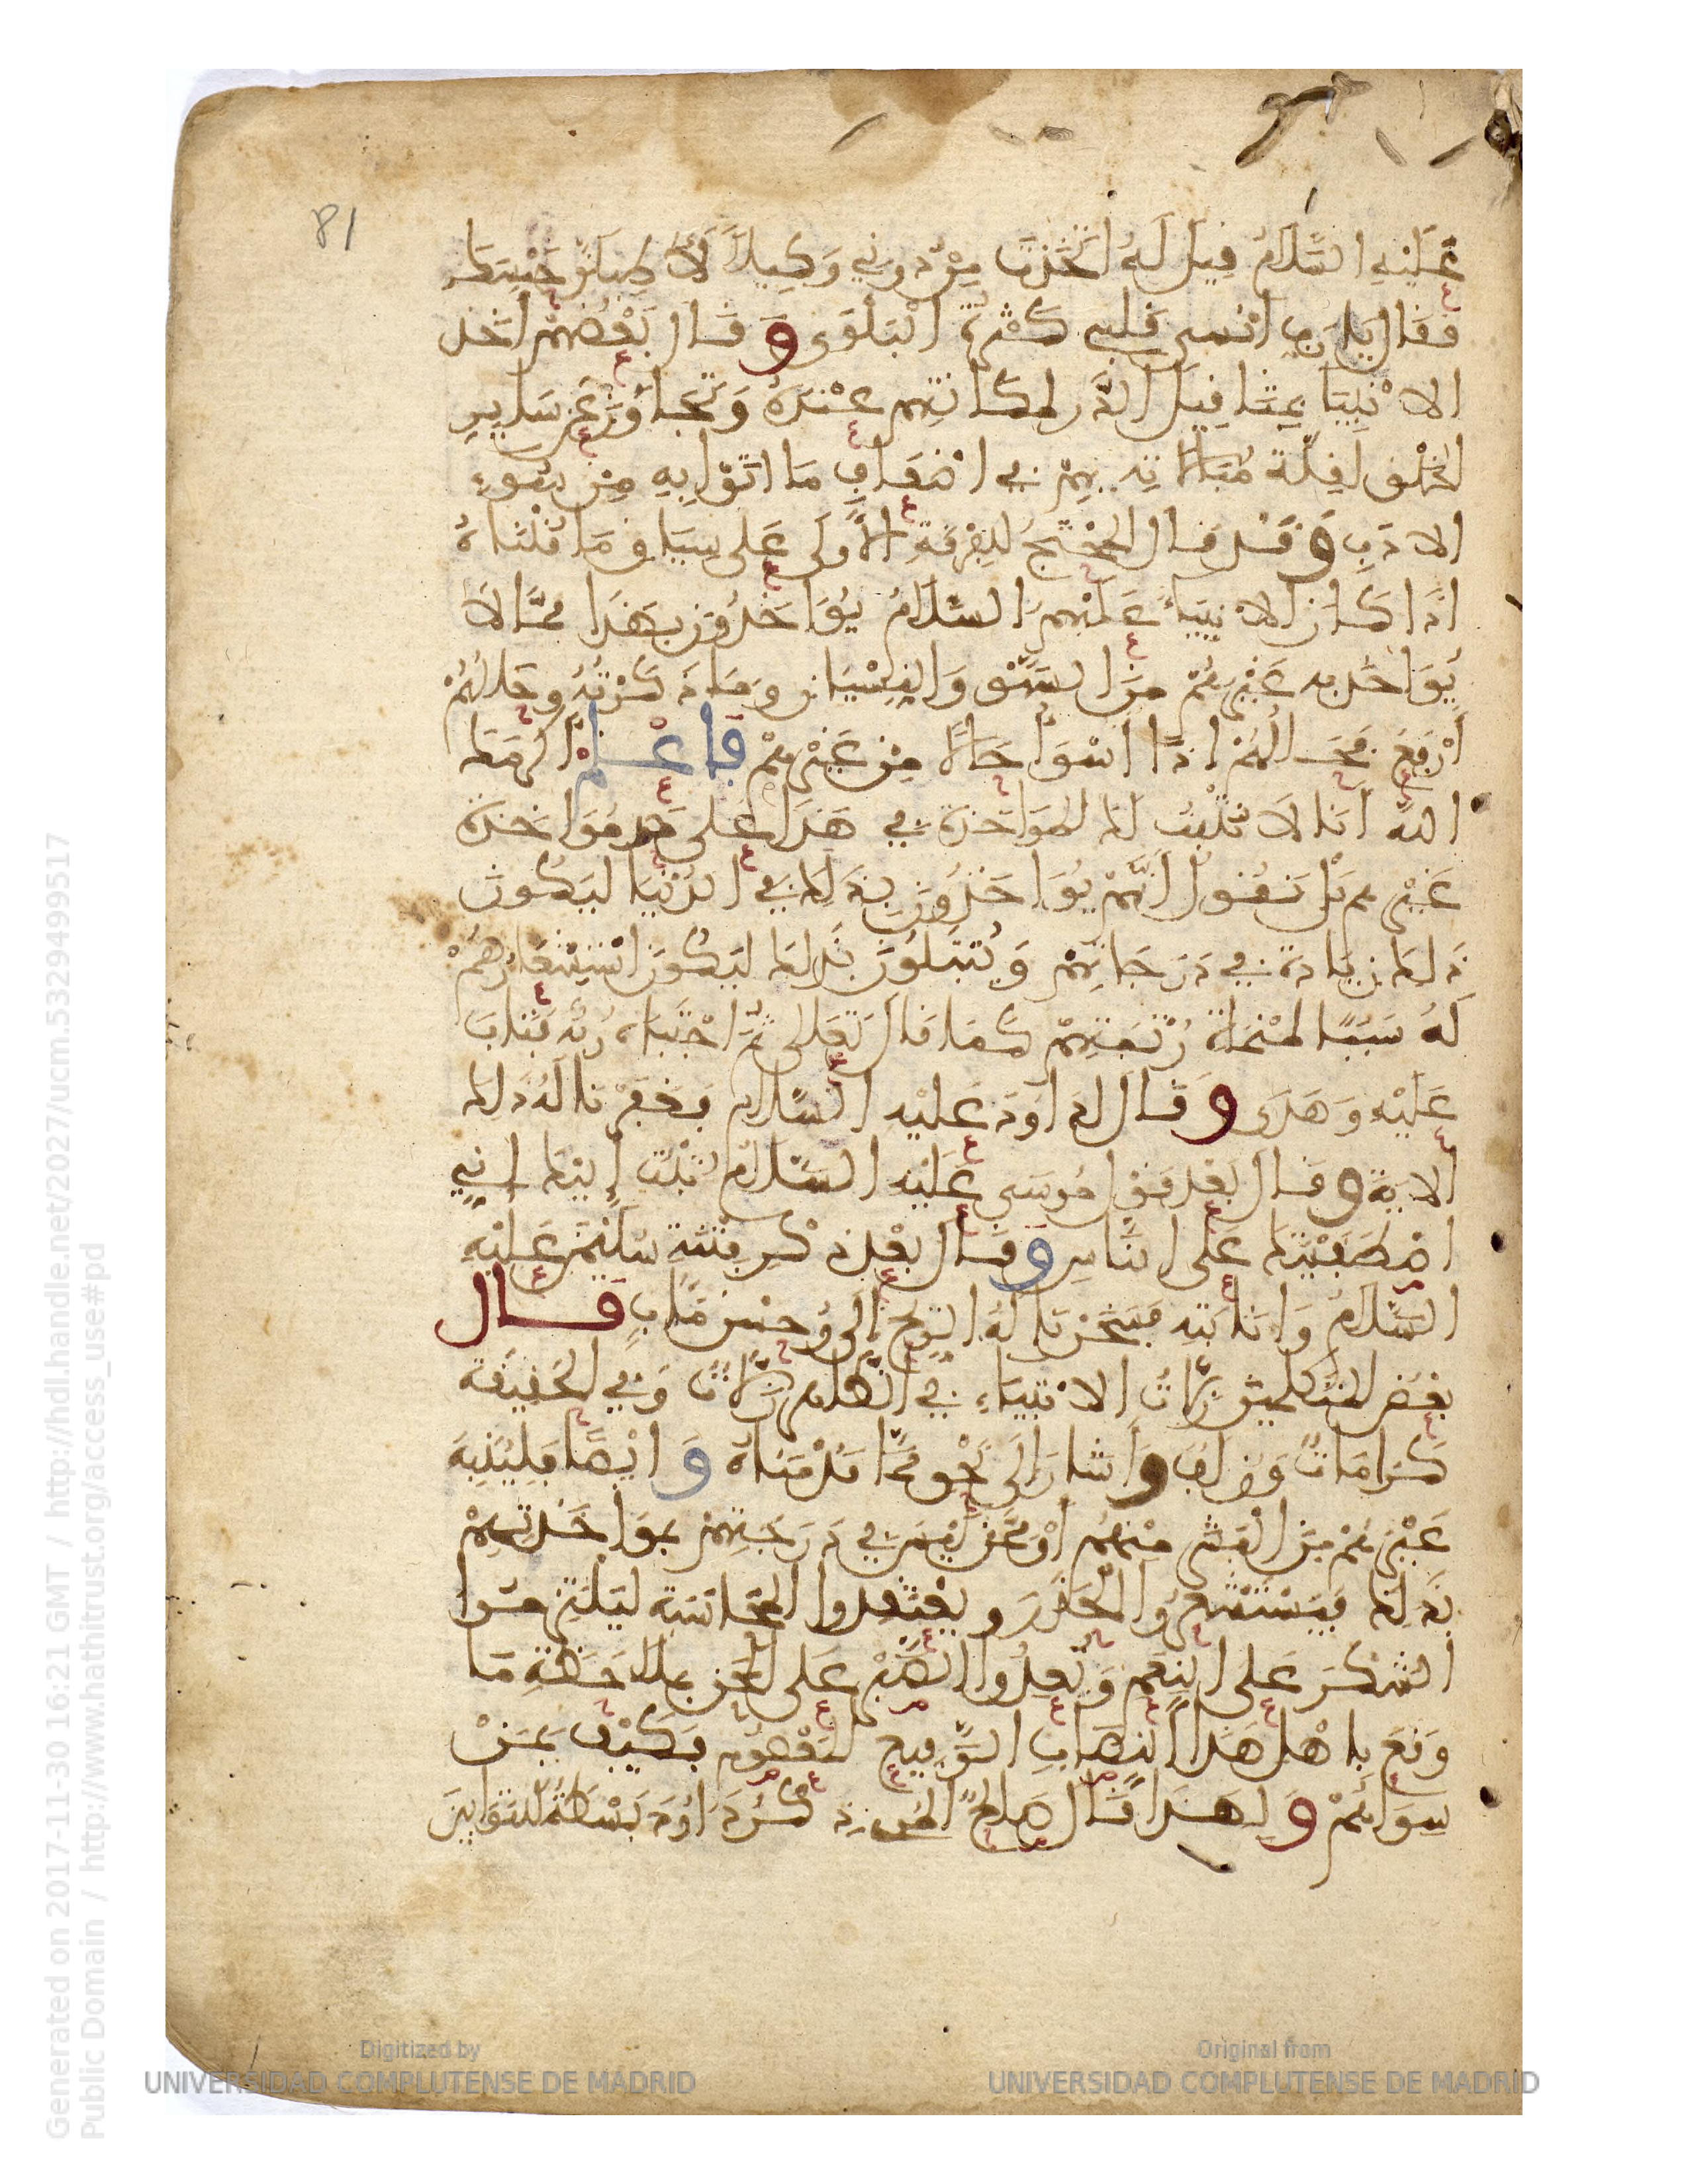 81
عَلَيْهِ السَّلَامُ قِيلَ لَهُ اتَّخَذْتَ مِنْ دُونِي وَكِيلاً لَأُطِيلَنَّ حَبْسَكَ
فقَالَ يَا رَبِّ انْسى قلبي كَثْرَةُ الْبَلْوَى وَقَال بَعْضُهُمْ أُخِذ
الانْبِيَا بِمَثَاقِيلِ الذَّر لمكانتِهِم عِنْدَهُ وَتَجَاوَزَ عَن سَايِرِ
الخَلْق لِقِلَّة مُبَالَاتِه بِهِمْ فِي اضْعَافِ مَا اتَوْا بِهِ مِن سُوءِ
الادَبِ وَقَد قَال المُحْتَجُّ لِلفِرْقَةِ الأُولَى عَلى سِيَاقِ مَا قُلْنَاهُ
اذَا كَانَ الانْبِيَاءُ عَلَيْهِمُ السَّلَامُ يُوَاخَذُونَ بِهَذَا مِمَّا لَا
يُوَاخَذُ بِه غَيْرُهُمْ مِنَ السَّهْو وَالنِّسْيَانِ وَمَا ذَكَرْتَهُ وَحَالُهُمْ
أَرْفَعُ فَحَالُهُمْ اذًا اسْوَأُ حَالاً مِن غَيْرِهِمْ فَاعْلَمْ اكْرَمَكَ
اللهُ أَنَّا لَا نُثْبِتُ لَكَ المُوَاخَذةَ فِي هَذَا عَلى حَدِّ مُوَاخَذةِ
غَيْرِهِم بَلْ نَقُولُ أَنَّهُمْ يُوَاخَذُونَ بِذَلِكَ فِي الدُّنْيَا لِيَكُونَ
ذَلِكَ زِيَادَةً فِي دَرَجَاتِهِمْ وَيُبْتَلُونَ بذَلِكَ لِيَكُونَ اسْتِشْعَارُهُمْ
لَهُ سَبَبًا لِمَنْمَاةِ رُتَبِهِمْ كَمَا قَالَ تَعَالى ثُمَّ اجْتَبَاهُ رَبُّهُ فَتَابَ
عَلَيْهِ وَهَدَى وَقَالَ لدَاوُدَ عَلَيْهِ السَّلَام فَغَفَرْنَا لَهُ ذَلِكَ
الايَة وَقَالَ بَعْدَ قَوْلِ مُوسَى عَلَيْهِ السَّلَامُ تُبْتُ إِلَيْكَ إِنِّي
اصْطَفَيْتُكَ عَلَى النَّاسِ وَقَالَ بَعْدَ ذِكْرِ فِتْنَةِ سُلَيْمَنَ عَلَيْهِ
السَّلَامُ وَانَابَتِهِ فَسَخَّرْنَا لَهُ الرِّيحَ إِلَى وَحُسْنَ مَئَابٍ قَال
بَعْضُ المُتَكَلِّمِينَ زَلَّاتُ الانْبِيَاءِ فِي الظَّاهِرِ زَلَّاتٌ وَفِي الحَقِيقَة
كَرَامَاتٌ وَزُلَفٌ وَأَشَارَ إِلَى نَحْوِ مِمَّا قَدَّمْنَاهُ وَايْضًا فَلِيُنَبِّهَ
غَيْرَهُمْ مِنَ الْبَشَرِ مِنْهُم أَوْ مِمَّنْ لَيْسَ فِي دَرَجَتِهِمْ بِمُوَاخَذَتِهِمْ
بِذَلِكَ فَيَسْتَشْعِرُوا الْحَذَرَ وَيَعْتَقِدُوا المُحَاسَبَةَ لِيَلْتَزِمُوا
الشُّكْرَ عَلَى النِّعَمِ وَيُعِدُّوا الصَّبْرَ عَلَى المِحَنِ بِمُلَاحَظَةِ مَا
وَقَعَ بِاهْلِ هَذَا النِّصَابِ الرَّفِيعِ المَعْصُومِ فَكَيْفَ بِمَنْ
سِوَاهُمْ وَلِهَذَا قَالَ صَالِحٌ المُرِّي ذِكْرُ دَاوُدَ بَسْطَةٌ لِلتَّوَّابِينَ
Generated on 2017-11-30 16:21 GMT / http://hdl.handle.net/2027/ucm.5329499517
Public Domain / http://www.hathitrust.org/access_use#pd
Digitized by
UNIVERSIDAD COMPLUTENSE DE MADRID
Original from
UNIVERSIDAD COMPLUTENSE DE MADRID